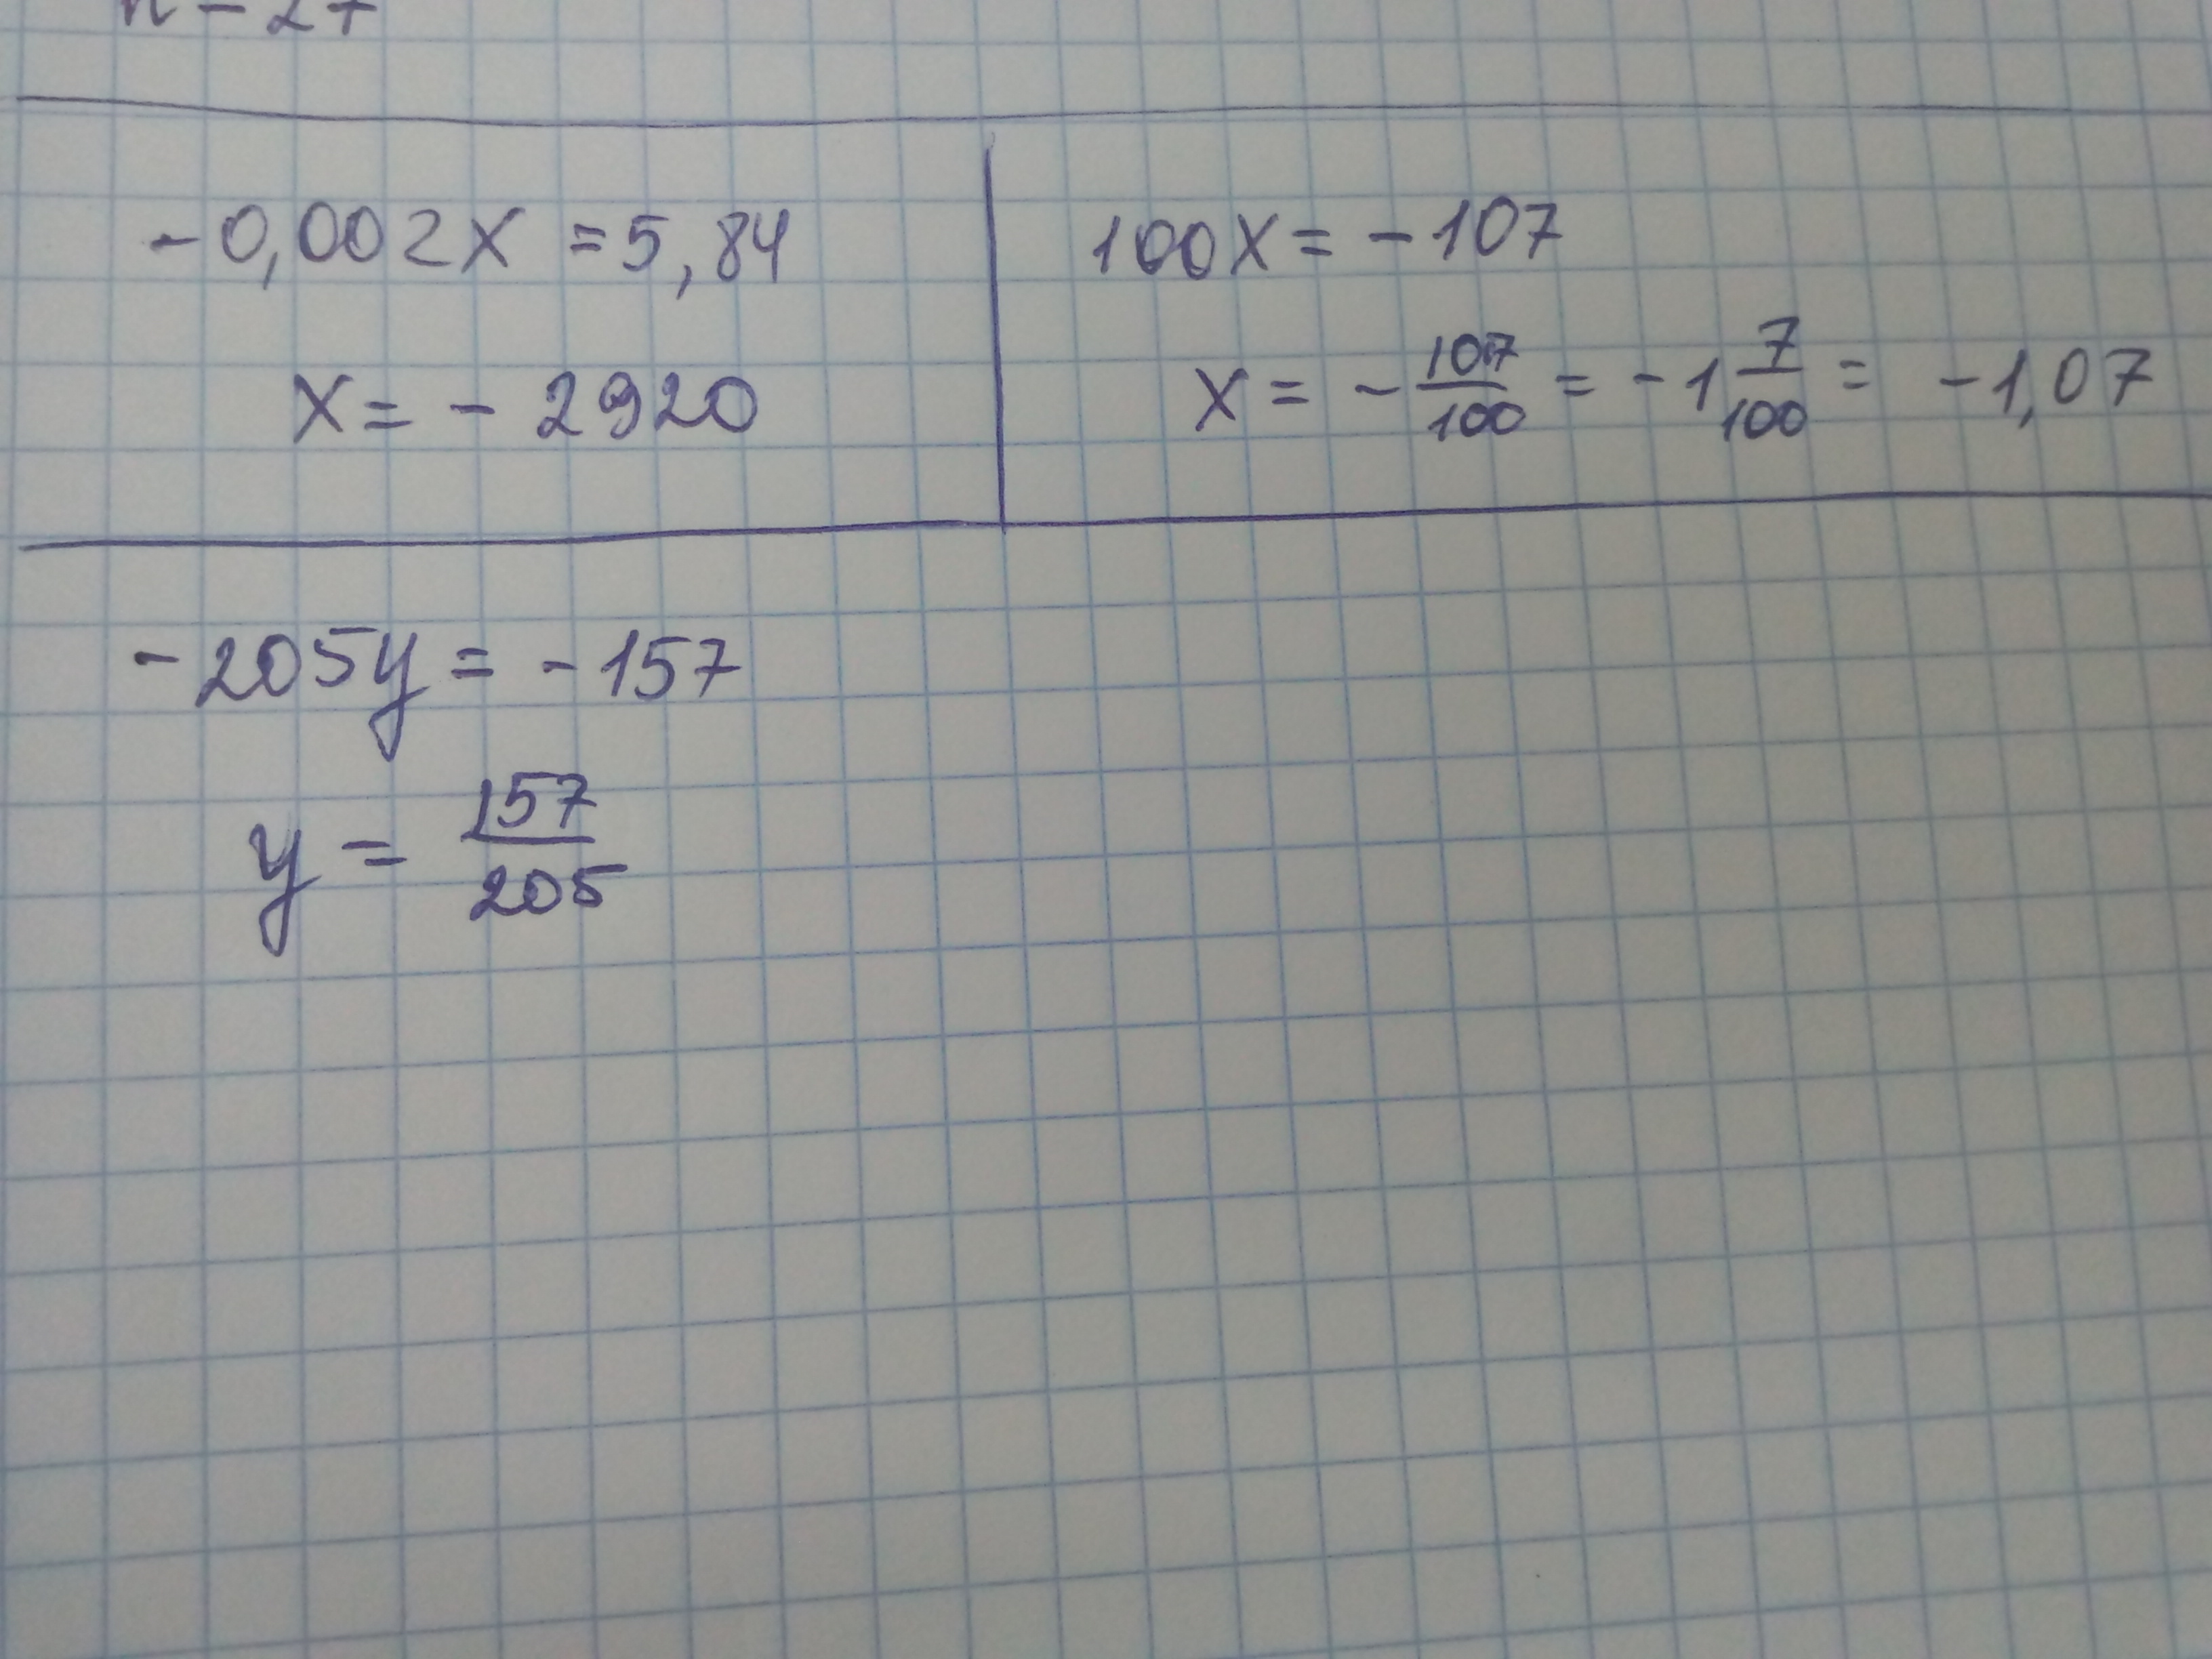 -0,002x = 5,84
x = - 2920
100x = - 107
x = - 107/100 = - 1 7/100 = - 1,07
-205y = - 157
y = 157/205